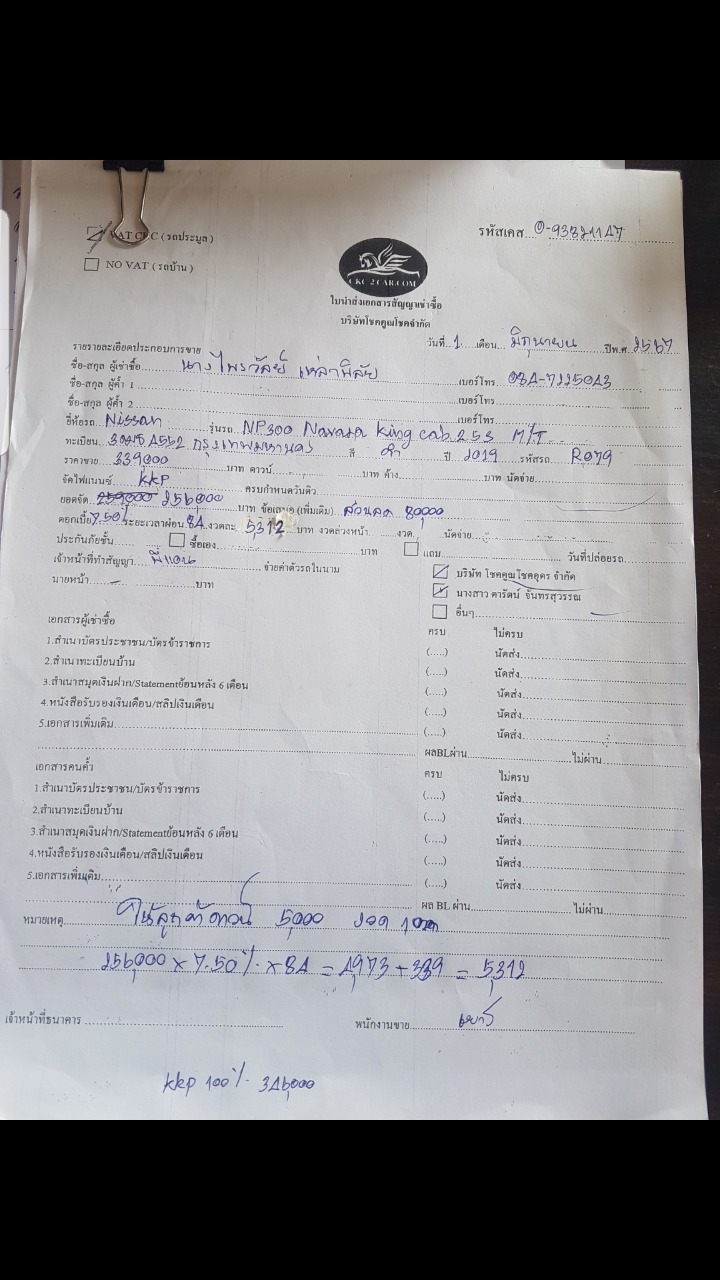 VAT CKC ( รถประมูล )
รหัสเคส...0-93321147
NO VAT ( รถบ้าน )
CKC 2 CAR.COM
ใบนำส่งเอกสารสัญญาเช่าซื้อ
บริษัทโชคคูณโชคจำกัด
วันที่ 1 เดือน มิถุนายน ปีพ.ศ 2567
รายรายละเอียดประกอบการขาย
ชื่อ-สกุล ผู้เช่าซื้อ นางไพรวัลย์ เหล่าพิลัย เบอร์โทร 084-7225043
ชื่อ-สกุล ผู้ค้ำ 1 เบอร์โทร
ชื่อ-สกุล ผู้ค้ำ 2 เบอร์โทร
ยี่ห้อรถ Nissan รุ่นรถ NP300 Navara King cab 2.5 S M/T
ทะเบียน 4552 กรุงเทพมหานคร สี ดำ ปี 2019 รหัสรถ R079
ราคาขาย 339000 บาท ดาวน์ บาท ค้าง บาท นัดจ่าย
จัดไฟแนนซ์ KKP ครบกำหนดวันดิว
ยอดจัด 259000 256000 บาท ข้อเสนอ (เพิ่มเติม) ส่วนลด 80000
ดอกเบี้ย 7.50% ระยะเวลาผ่อน 84 งวดละ 5312 บาท งวดล่วงหน้า งวด นัดจ่าย
ประกันภัยชั้น ซื้อเอง บาท แถม วันที่ปล่อยรถ
เจ้าหน้าที่ทำสัญญา พี่แอน จ่ายค่าตัวรถในนาม บริษัท โชคคูณโชคอุดร จำกัด
นายหน้า - บาท นางสาว ดารัตน์ จันทรสุวรรณ
อื่นๆ
เอกสารผู้เช่าซื้อ ครบ ไม่ครบ
1.สำเนาบัตรประชาชน/บัตรข้าราชการ (.....) นัดส่ง
2.สำเนาทะเบียนบ้าน (.....) นัดส่ง
3.สำเนาสมุดเงินฝาก/Statementย้อนหลัง 6 เดือน (.....) นัดส่ง
4.หนังสือรับรองเงินเดือน/สลิปเงินเดือน (.....) นัดส่ง
5.เอกสารเพิ่มเติม (.....) นัดส่ง
ผลBLผ่าน ไม่ผ่าน
เอกสารคนค้ำ ครบ ไม่ครบ
1.สำเนาบัตรประชาชน/บัตรข้าราชการ (.....) นัดส่ง
2.สำเนาทะเบียนบ้าน (.....) นัดส่ง
3.สำเนาสมุดเงินฝาก/Statementย้อนหลัง 6 เดือน (.....) นัดส่ง
4.หนังสือรับรองเงินเดือน/สลิปเงินเดือน (.....) นัดส่ง
5.เอกสารเพิ่มเติม (.....) นัดส่ง
ผล BL ผ่าน ไม่ผ่าน
หมายเหตุ ให้ลูกค้าดาวน์ 5,000
256,000 x 7.50% x 84 = 4,973 + 339 = 5,312
เจ้าหน้าที่ธนาคาร พนักงานขาย
kkp 100% 346,000